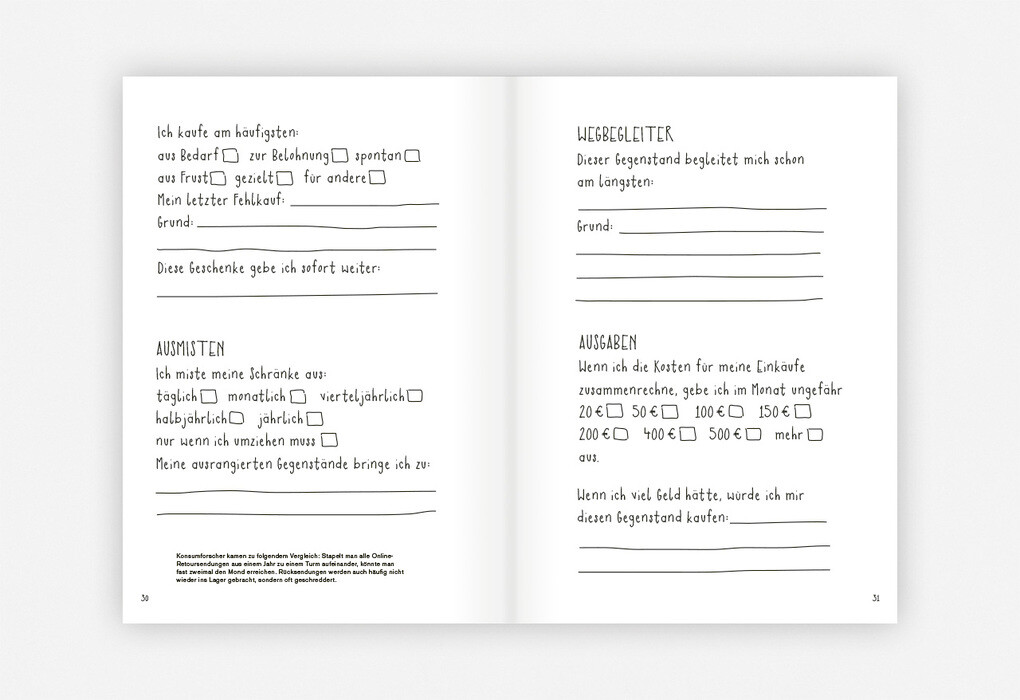 Ich kaufe am häufigsten:
aus Bedarf zur Belohnung spontan
aus Frust gezielt für andere
Mein letzter Fehlkauf:
Grund:
Diese Geschenke gebe ich sofort weiter:
AUSMISTEN
Ich miste meine Schränke aus:
täglich monatlich vierteljährlich
halbjährlich jährlich
nur wenn ich umziehen muss
Meine ausrangierten Gegenstände bringe ich zu:
Konsumforscher kamen zu folgendem Vergleich: Stapelt man alle Online-
Retoursendungen aus einem Jahr zu einem Turm aufeinander, könnte man
fast zweimal den Mond erreichen. Rücksendungen werden auch häufig nicht
wieder ins Lager gebracht, sondern oft geschreddert.
30
WEGBEGLEITER
Dieser Gegenstand begleitet mich schon
am längsten:
Grund:
AUSGABEN
Wenn ich die Kosten für meine Einkäufe
zusammenrechne, gebe ich im Monat ungefähr
20 € 50 € 100 € 150 €
200 € 400 € 500 € mehr
aus.
Wenn ich viel Geld hätte, würde ich mir
diesen Gegenstand kaufen:
31